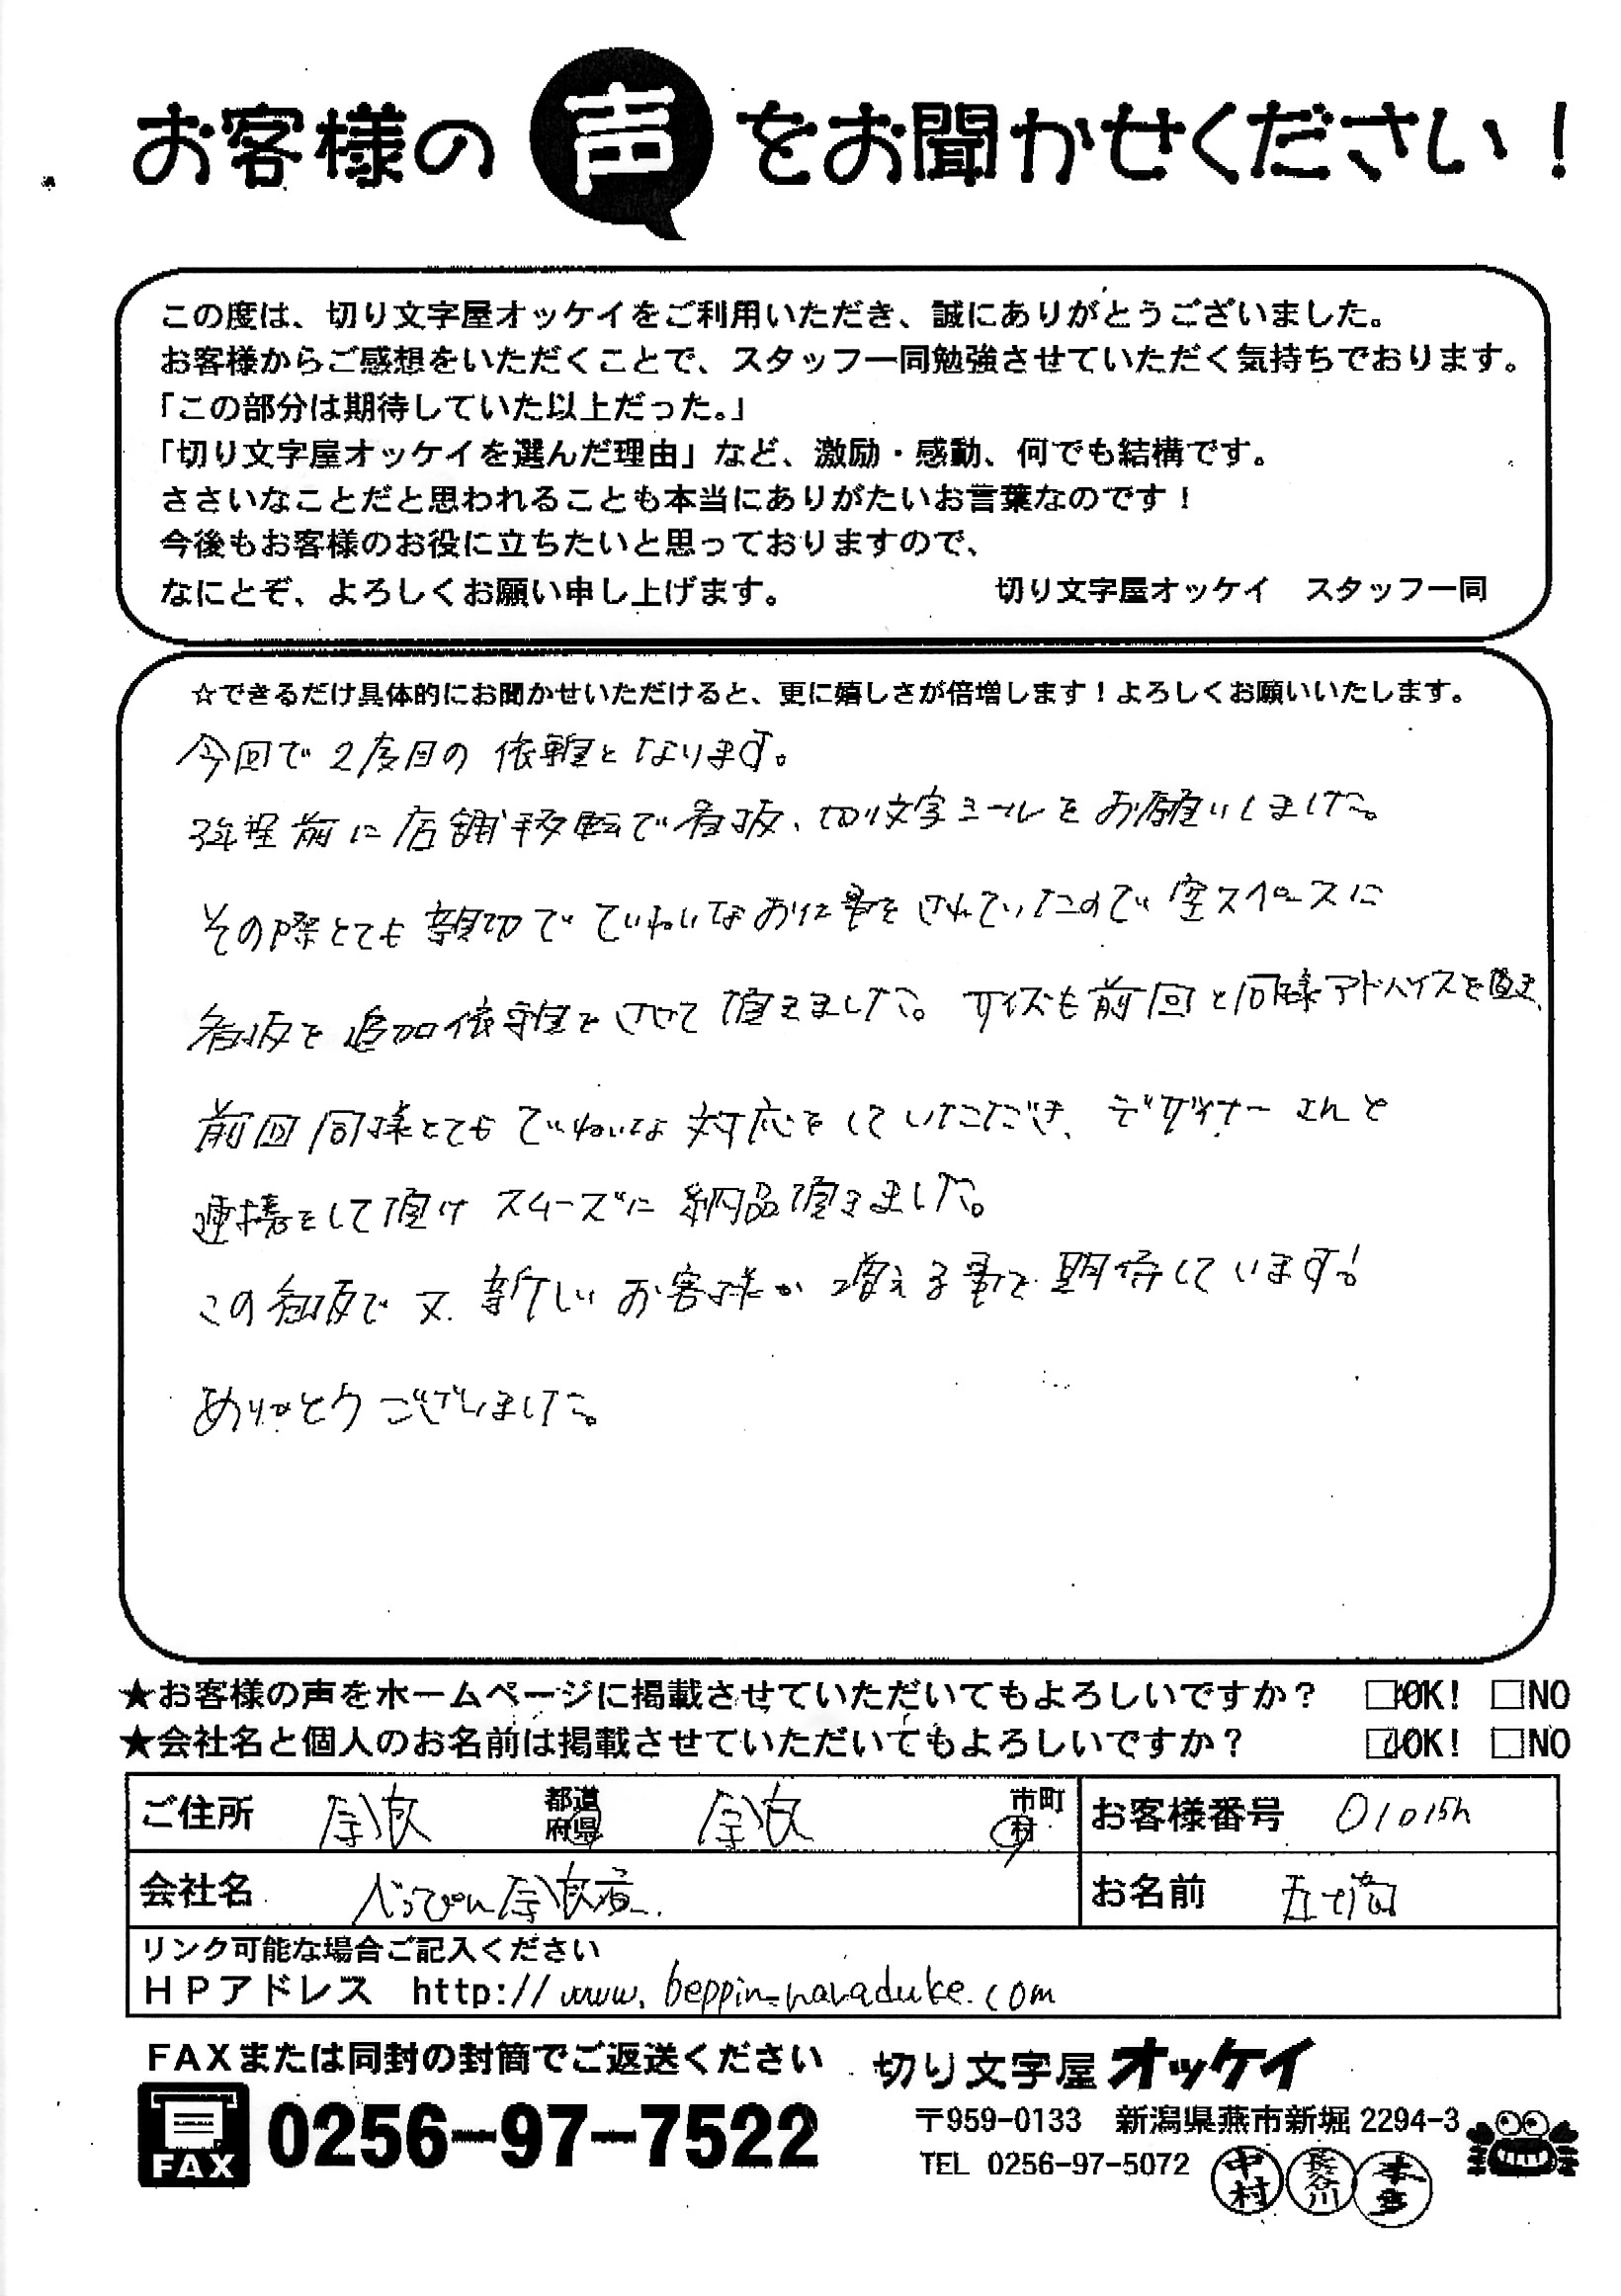 お客様の声をお聞かせください！
この度は、切り文字屋オッケイをご利用いただき、誠にありがとうございました。
お客様からご感想をいただくことで、スタッフ一同勉強させていただく気持ちでおります。
「この部分は期待していた以上だった。」
「切り文字屋オッケイを選んだ理由」など、激励・感動、何でも結構です。
ささいなことだと思われることも本当にありがたいお言葉なのです！
今後もお客様のお役に立ちたいと思っておりますので、
なにとぞ、よろしくお願い申し上げます。 切り文字屋オッケイ スタッフ一同
☆できるだけ具体的にお聞かせいただけると、更に嬉しさが倍増します！よろしくお願いいたします。
今回で2度目の依頼となります。
3年程前に店舗移転で看板、切り文字シールをお願いしました。
その際とても親切でていねいなお仕事をされていたので空スペースに
看板を追加依頼をさせて頂きました。サイズも前回と同様アドバイスを頂き、
前回同様とてもていねいな対応をしていただき、デザイナーさんと
連携をして頂け スムーズに納品頂きました。
この看板で又、新しいお客様が増える事を期待しています!
ありがとうございました。
★お客様の声をホームページに掲載させていただいてもよろしいですか？ □OK! □NO
★会社名と個人のお名前は掲載させていただいてもよろしいですか？ □OK! □NO
ご住所 奈良 都道府県 奈良 市町村 お客様番号
会社名 べっぴん奈良漬 お名前
リンク可能な場合ご記入ください
HPアドレス http://www.beppin-naraduke.com
FAXまたは同封の封筒でご返送ください 切り文字屋オッケイ
FAX 0256-97-7522
〒959-0133 新潟県燕市新堀 2294-3
TEL 0256-97-5072 中村 長谷川